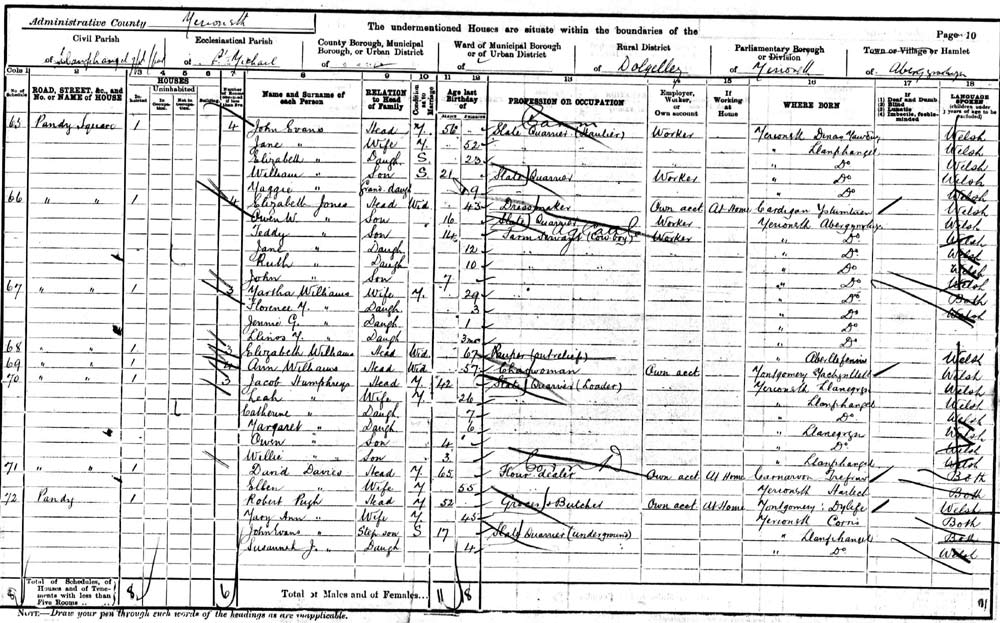 Administrative County Merioneth
The undermentioned Houses are situate within the boundaries of the
Page 10
Civil Parish
of
Ecclesiastical Parish
of St Michael
County Borough, Municipal Borough, or Urban District
of
Ward of Municipal Borough or of Urban District
of
Rural District
of Dolgelley
Parliamentary Borough or Division
of Merioneth
Town or Village or Hamlet
of Abergynolwyn
Cols 1 2 3 4 5 6 7 8 9 10 11 12 13 14 15 16 17 18
No. of Schedule
ROAD, STREET, &c., and No. or NAME of HOUSE
HOUSES
Inhabited
Uninhabited
In Occupation
Not in Occupation
Building
Name and Surname of each Person
RELATION to Head of Family
Condition as to Marriage
Age last Birthday of
Males Females
PROFESSION OR OCCUPATION
Employer, Worker, or Own account
If Working at Home
WHERE BORN
(1) Deaf and Dumb
(2) Blind
(3) Lunatic
(4) Imbecile, feeble-minded
LANGUAGE SPOKEN
65 Pandy Square 1 4 John Evans Head M 56 Slate Quarrier (Worker Merioneth Dinas Mawddwy Welsh
Jane " Wife M 52 " Llanfihangel Welsh
Elizabeth " Daugh S 23 " Do Welsh
William " Son S 21 Slate Quarrier Worker " Do Welsh
Maggie " Grand daugh 9 " Do Welsh
66 " " 1 4 Elizabeth Jones Head Wid 43 Dressmaker Own acct At Home Cardigan Welsh
Owen W. " Son 16 Slate Quarrier Worker Merioneth Abergynolwyn Welsh
Teddy " Son 14 Farm Servant (Cow boy) Worker " Do Welsh
Jane " Daugh 12 " Do Welsh
Ruth " Daugh 10 " Do Welsh
John " Son 7 " Do Welsh
67 " " 1 3 Martha Williams Wife M 29 " Do Both
Florence M. " Daugh 3 " Do Welsh
Jennie G. " Daugh 1 " Do
Llinos M. " Daugh 3mo " Do
68 " " 1 Elizabeth Williams Head Wid 67 Pauper (out relief) " Welsh
69 " " 1 Ann Williams Head Wid 57 Charwoman Own acct Montgomery Machynlleth Welsh
70 " " 1 3 Jacob Humphreys Head M 42 Slate Quarrier (Loader) Merioneth Llanegryn Welsh
Leah " Wife M 26 " Llanfihangel Welsh
Catherine " Daugh 7 " Do Welsh
Margaret " Daugh 6 " Welsh
Owen " Son 4 " Llanegryn Welsh
Willie " Son 3 " Llanfihangel Welsh
71 " " 1 David Davies Head M 65 Flour dealer Own acct At Home Carnarvon Both
Ellen " Wife M 55 Merioneth Harlech Both
72 Pandy 1 Robert Pugh Head M 52 Grocer & Butcher Own acct At Home Montgomery: Dylife Welsh
Mary Ann " Wife M 45 Merioneth Corris Both
John Evans Step son S 17 Slate Quarrier (Underground) " Llanfihangel Both
Susannah J. " Daugh 4 " Do Welsh
8 Total of Schedules, of Houses and of Tenements with less than Five Rooms 8 6 Total of Males and of Females... 11 18
NOTE.—Draw your pen through such words of the headings as are inapplicable.